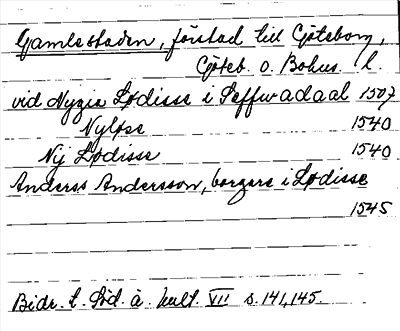 Gamlestaden, förstad till Göteborg,
Göteb. o. Bohus. l.
vid Nygia Lødisse i Seffwadaal 1507
Nyløse 1540
Nij Lødisse 1540
Anderss Andersson, borgare i Lødisse
1545
Bidr. t. Söd. å. kult. VII s. 141, 145.